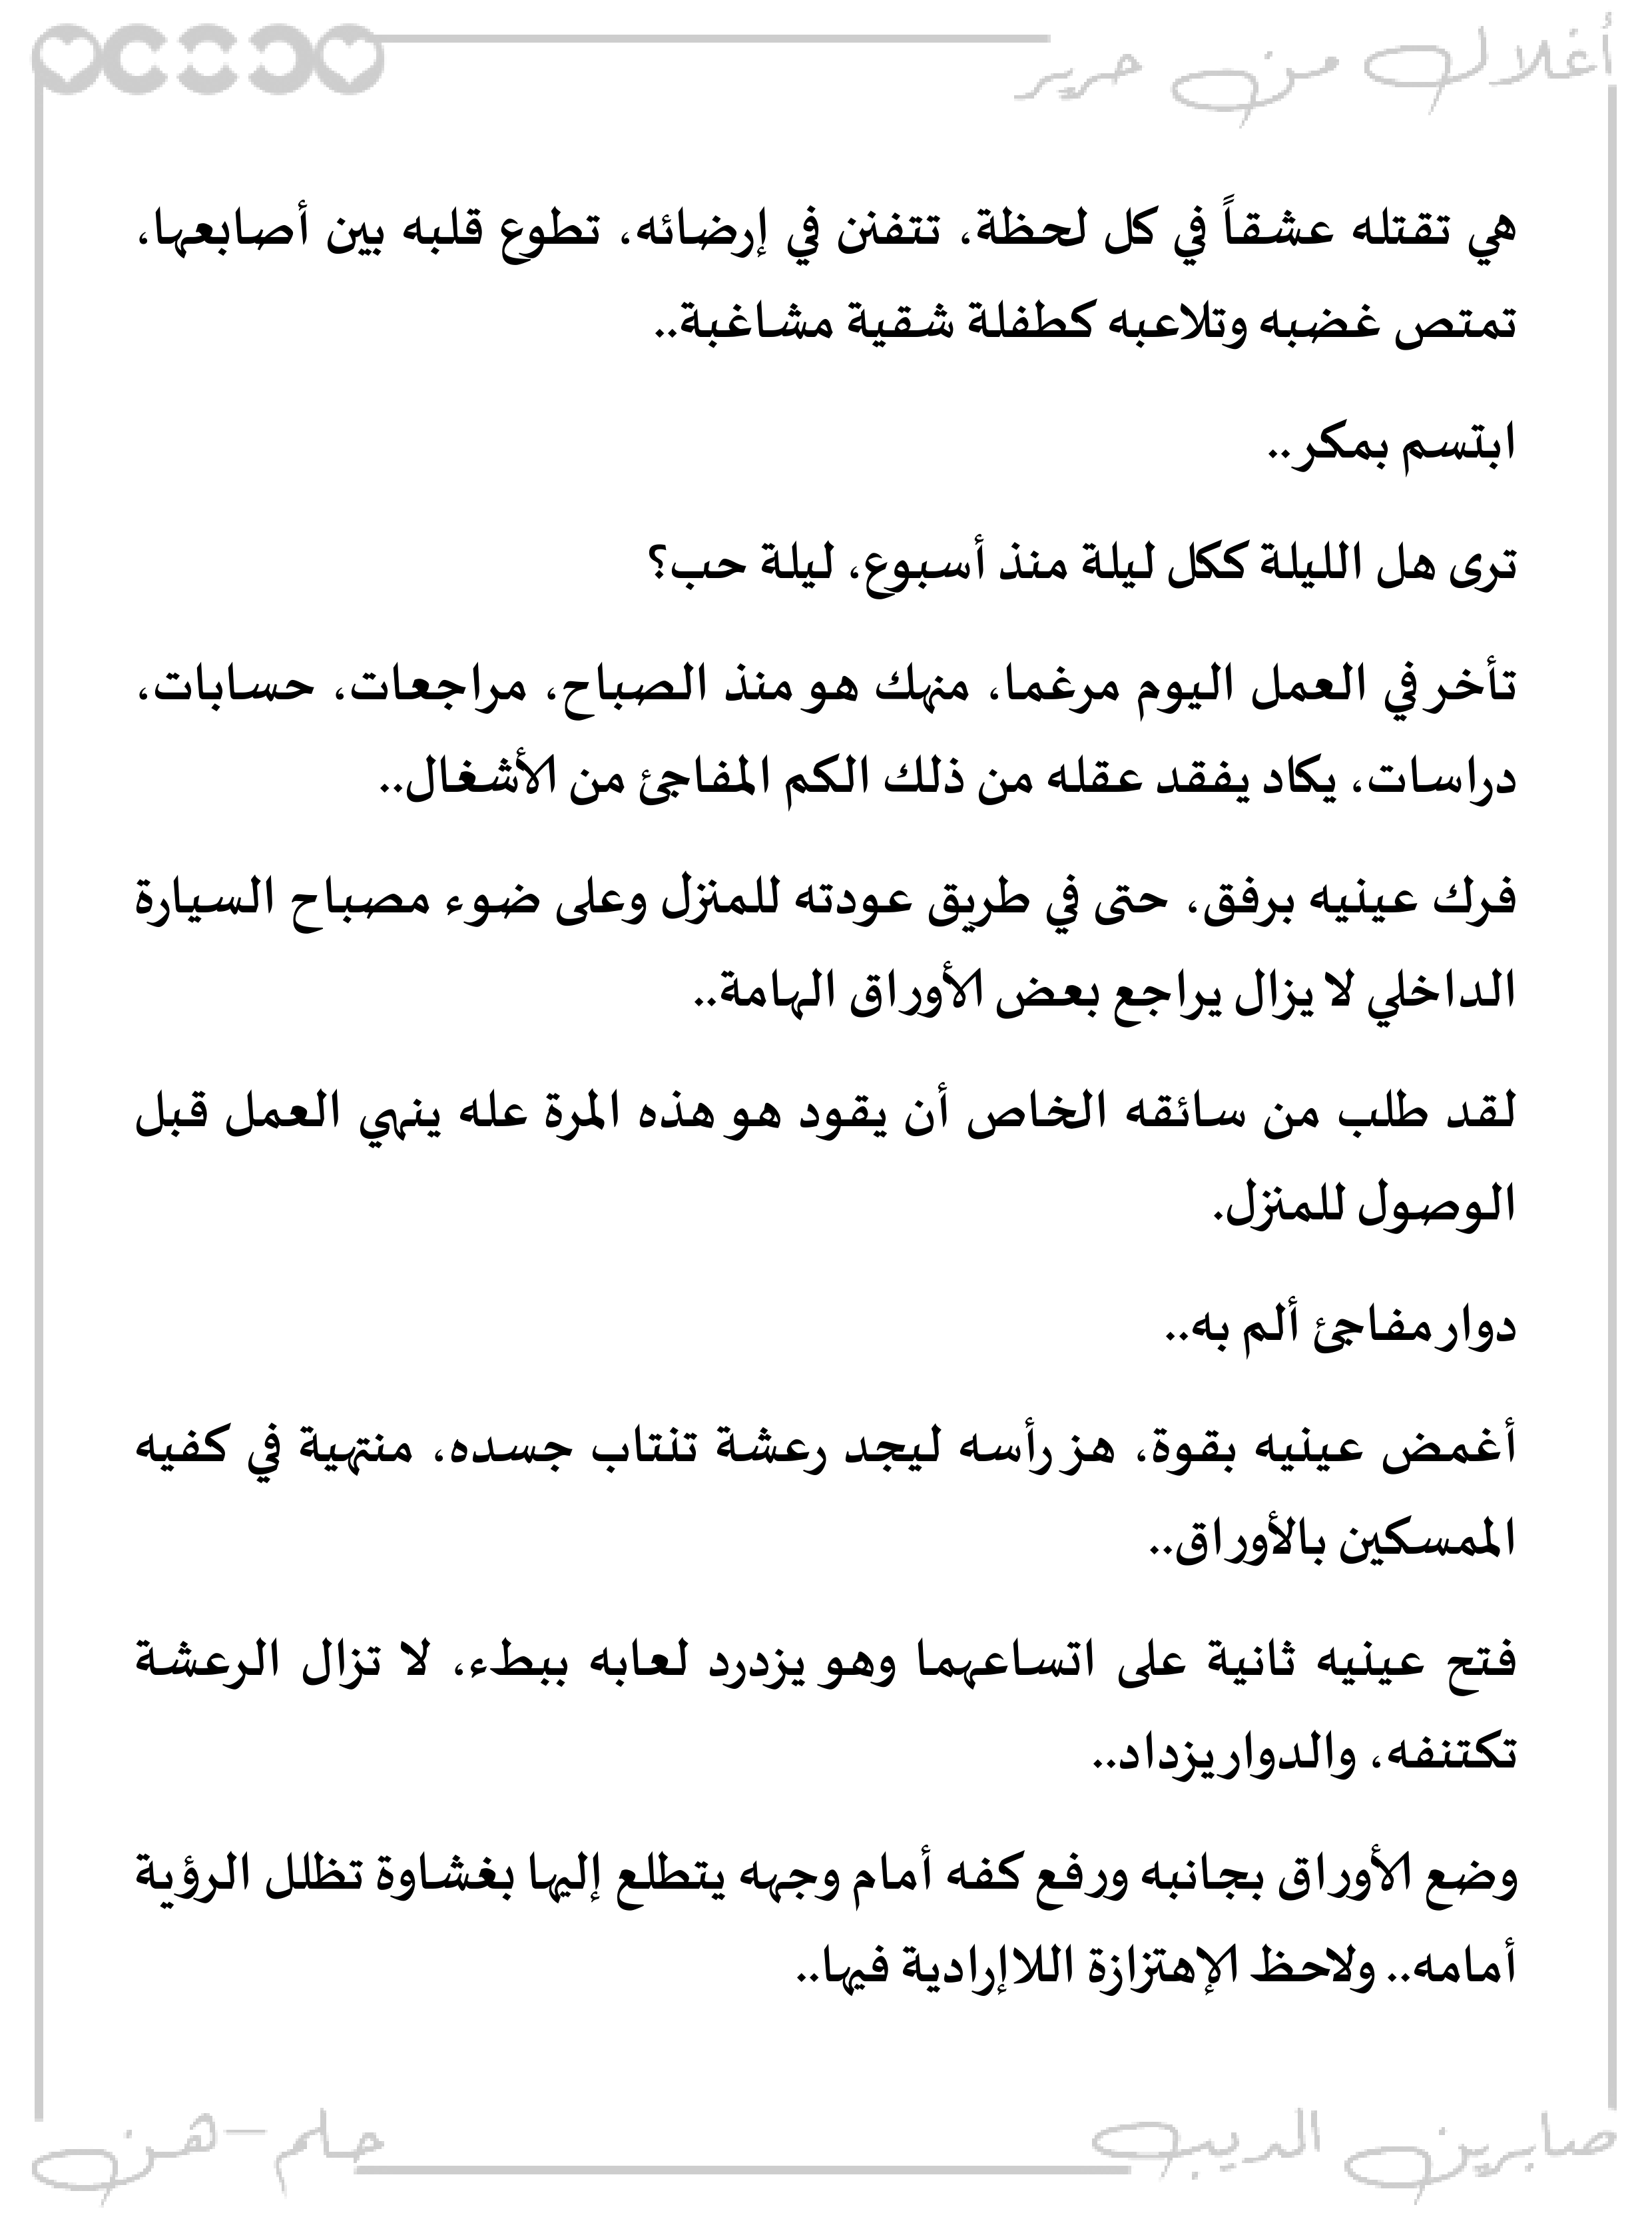 أغلال من حرير
هي تقتله عشقاً في كل لحظة، تتفنن في إرضائه، تطوع قلبه بين أصابعها،
تمتص غضبه وتلاعبه كطفلة شقية مشاغبة..
ابتسم بمكر..
ترى هل الليلة ككل ليلة منذ أسبوع، ليلة حب؟
تأخر في العمل اليوم مرغما، منهك هو منذ الصباح، مراجعات، حسابات،
دراسات، يكاد يفقد عقله من ذلك الكم المفاجئ من الأشغال..
فرك عينيه برفق، حتى في طريق عودته للمنزل وعلى ضوء مصباح السيارة
الداخلي لا يزال يراجع بعض الأوراق الهامة..
لقد طلب من سائقه الخاص أن يقود هو هذه المرة عله ينهي العمل قبل
الوصول للمنزل.
دوار مفاجئ ألم به..
أغمض عينيه بقوة، هز رأسه ليجد رعشة تنتاب جسده، منتهية في كفيه
الممسكين بالأوراق..
فتح عينيه ثانية على اتساعهما وهو يزدرد لعابه ببطء، لا تزال الرعشة
تكتنفه، والدوار يزداد..
وضع الأوراق بجانبه ورفع كفه أمام وجهه يتطلع إليها بغشاوة تظلل الرؤية
أمامه.. ولاحظ الإهتزازة اللاإرادية فيها..
صابرين الديب
حلم-هن